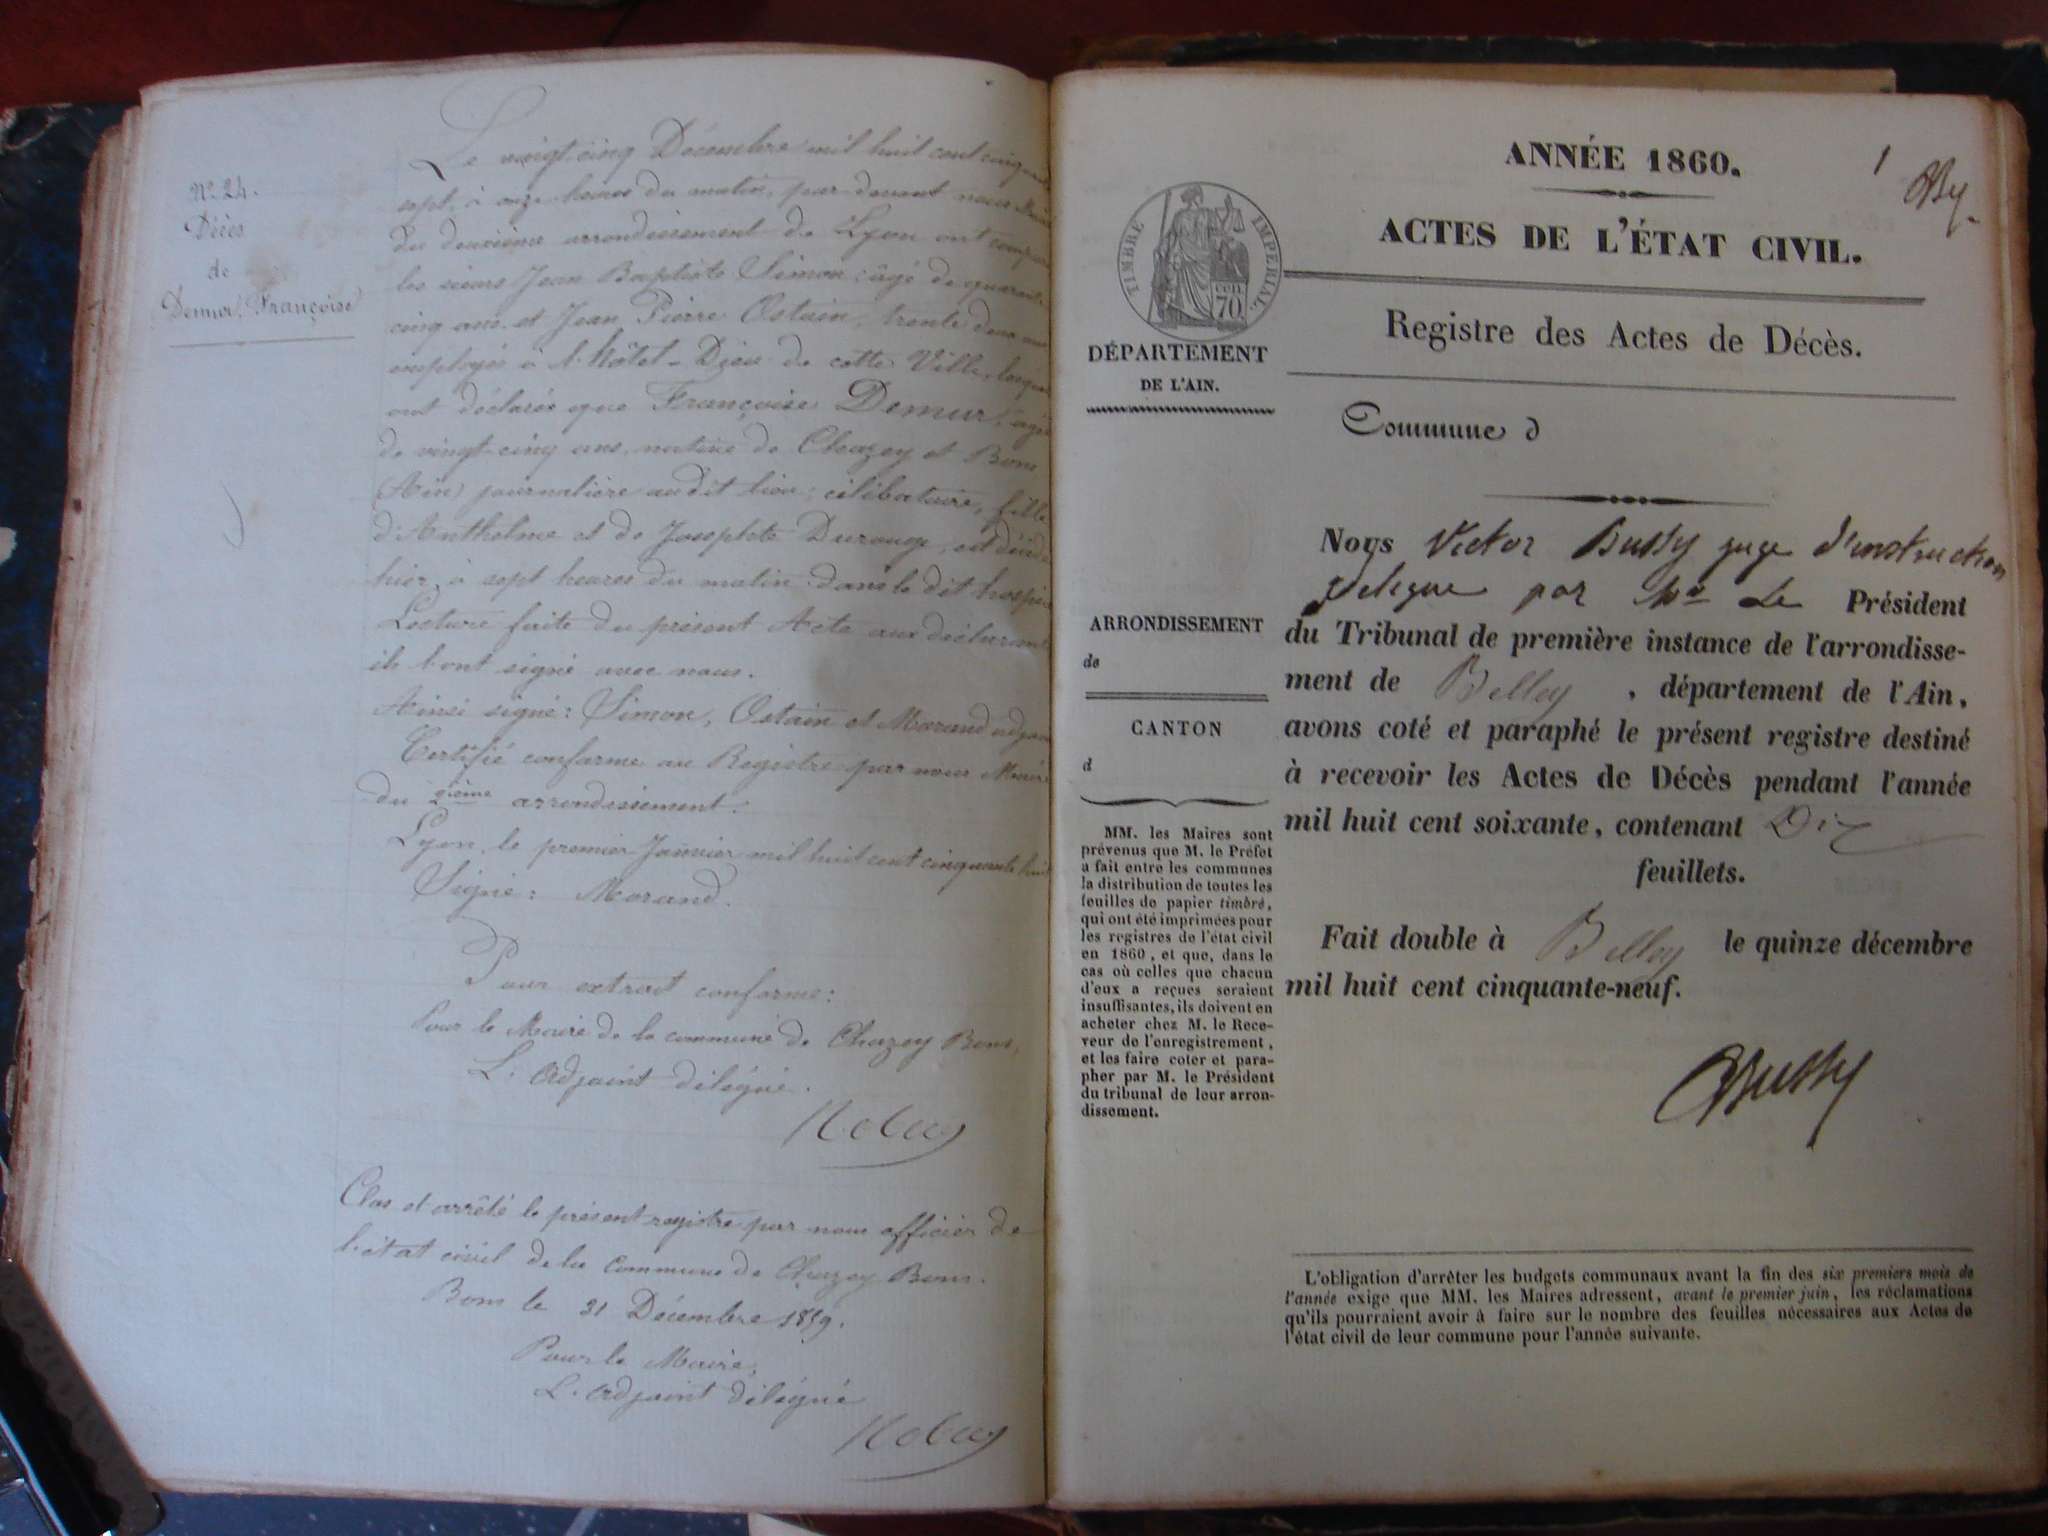 N° 24.
Décès
de
Demur, Françoise
Le vingt cinq Décembre mil huit cent cinquante
sept, à onze heures du matin, par devant nous Maire
du deuxième arrondissement de Lyon ont comparu
les sieurs Jean Baptiste Simon, âgé de quarante
cinq ans, et Jean Pierre Ostain, trente deux ans
employés à l'hôtel-Dieu de cette Ville, lesquels
ont déclaré que Françoise Demur, âgée
de vingt cinq ans, native de Chazey et Bons
(Ain) journalière audit lieu, célibataire, fille
d'Anthelme et de Josephte Durouge, est décédée
hier, à sept heures du matin dans le dit hospice
Lecture faite du présent Acte aux déclarants
ils l'ont signé avec nous.
Ainsi signé : Simon, Ostain et Morand adjoint
Certifié conforme au Registre par nous Maire
du 2ième arrondissement.
Lyon, le premier Janvier mil huit cent cinquante huit
Signé : Morand.
Pour extrait conforme :
Pour le Maire de la commune de Chazey Bons,
L'adjoint délégué.
Clos et arrêté le présent registre par nous officier de
l'état civil de la Commune de Chazey Bons.
Bons le 31 Décembre 1859.
Pour le Maire,
L'adjoint délégué
ANNÉE 1860.
1
ACTES DE L'ÉTAT CIVIL.
TIMBRE IMPÉRIAL
CEN. 70
Registre des Actes de Décès.
DÉPARTEMENT
DE L'AIN.
Commune d
ARRONDISSEMENT
de
CANTON
d
MM. les Maires sont
prévenus que M. le Préfet
a fait entre les communes
la distribution de toutes les
feuilles de papier timbré,
qui ont été imprimées pour
les registres de l'état civil
en 1860, et que, dans le
cas où celles que chacun
d'eux a reçues seraient
insuffisantes, ils doivent en
acheter chez M. le Rece-
veur de l'enregistrement,
et les faire coter et para-
pher par M. le Président
du tribunal de leur arron-
dissement.
Nous Victor Bussy juge d'instruction
délégué par Mr Le Président
du Tribunal de première instance de l'arrondisse-
ment de Belley, département de l'Ain,
avons coté et paraphé le présent registre destiné
à recevoir les Actes de Décès pendant l'année
mil huit cent soixante, contenant Dix
feuillets.
Fait double à Belley le quinze décembre
mil huit cent cinquante-neuf.
Bussy
L'obligation d'arrêter les budgets communaux avant la fin des six premiers mois de
l'année exige que MM. les Maires adressent, avant le premier juin, les réclamations
qu'ils pourraient avoir à faire sur le nombre des feuilles nécessaires aux Actes de
l'état civil de leur commune pour l'année suivante.